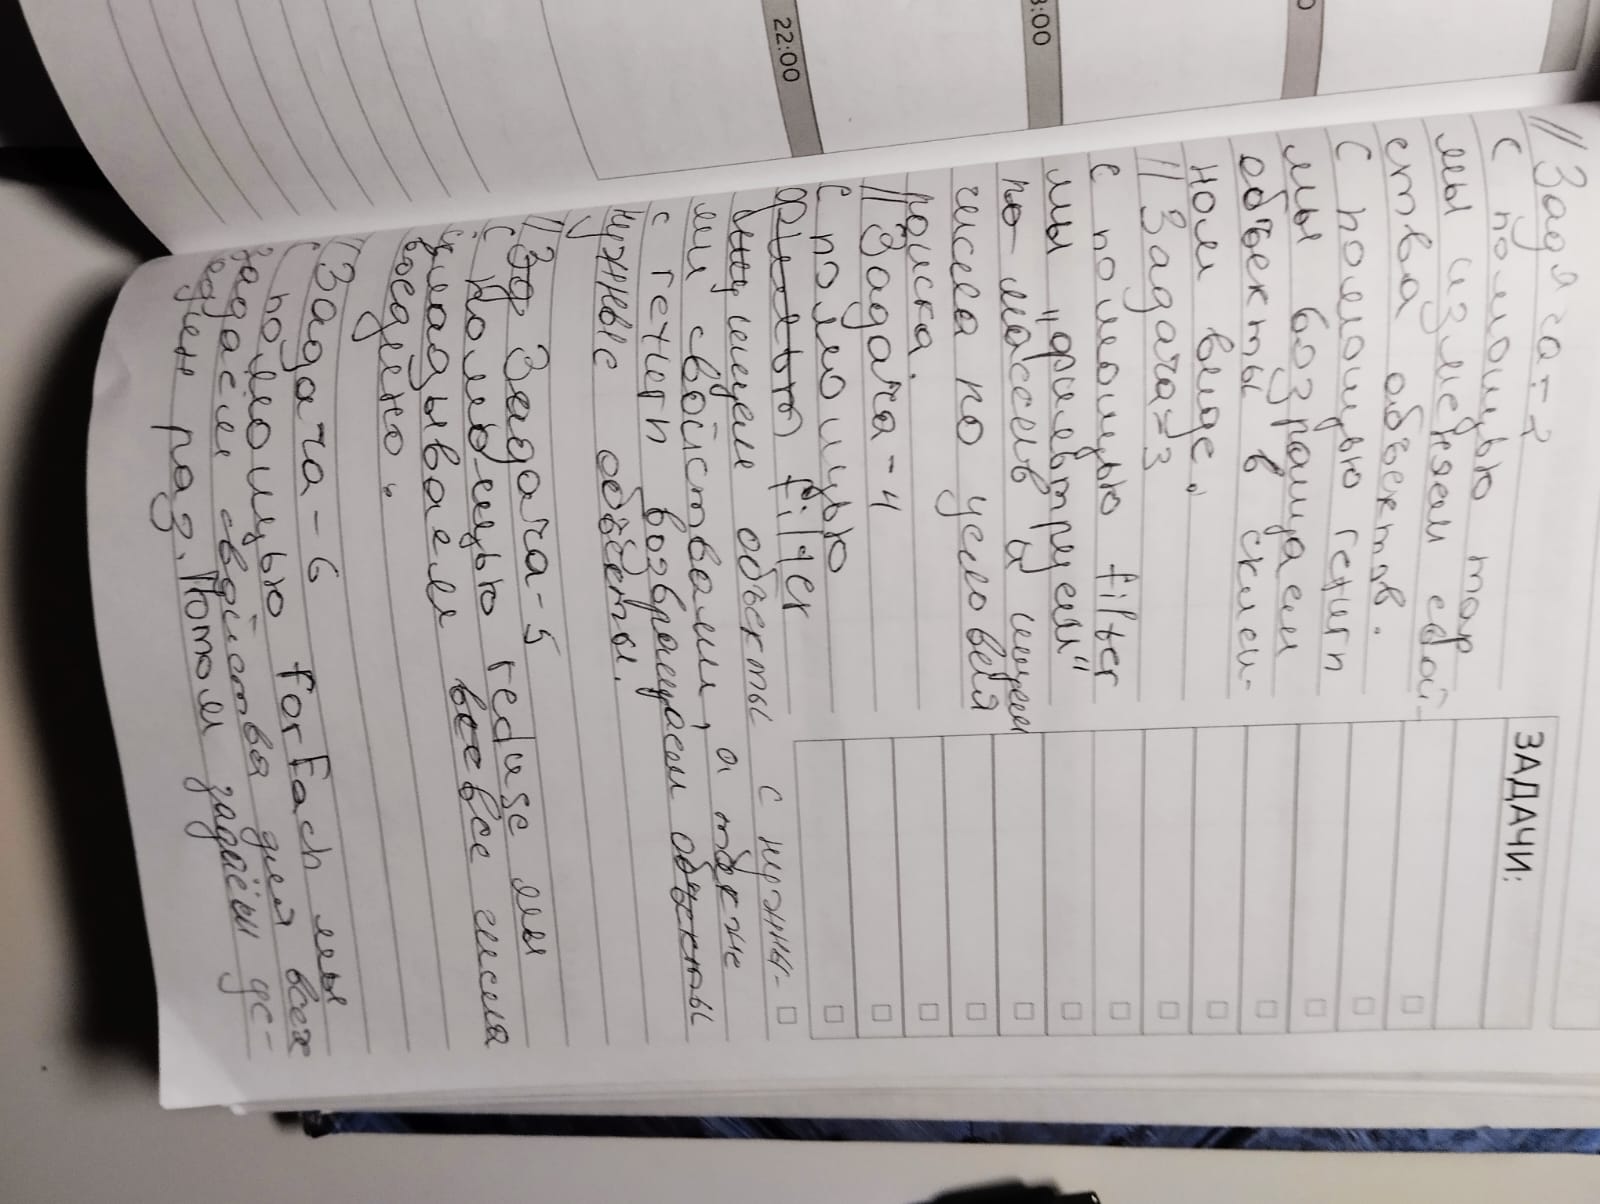 // Задача-2
ЗАДАЧИ:
С помощью map
мы изменяем свой-
ства объектов.
С помощью return
мы возращаем
объекты в склеи-
ном виде.
// Задача-3
С помощью filter
мы „фильтруем“
по массив и ищем
числа по условия
поиска.
// Задача-4
С помощью
фильт filter
ищу ищем объекты с нужны-
ми свойствами, а также
с return возвращаем объекты
нужные объекты.
// Зд Задача-5
С помощью reduse мы
складываем все все числа
воедино.
// Задача-6
С помощью forEach мы
задаём свойства для всех
един раз. Потом задаём ус-
8:00
22:00